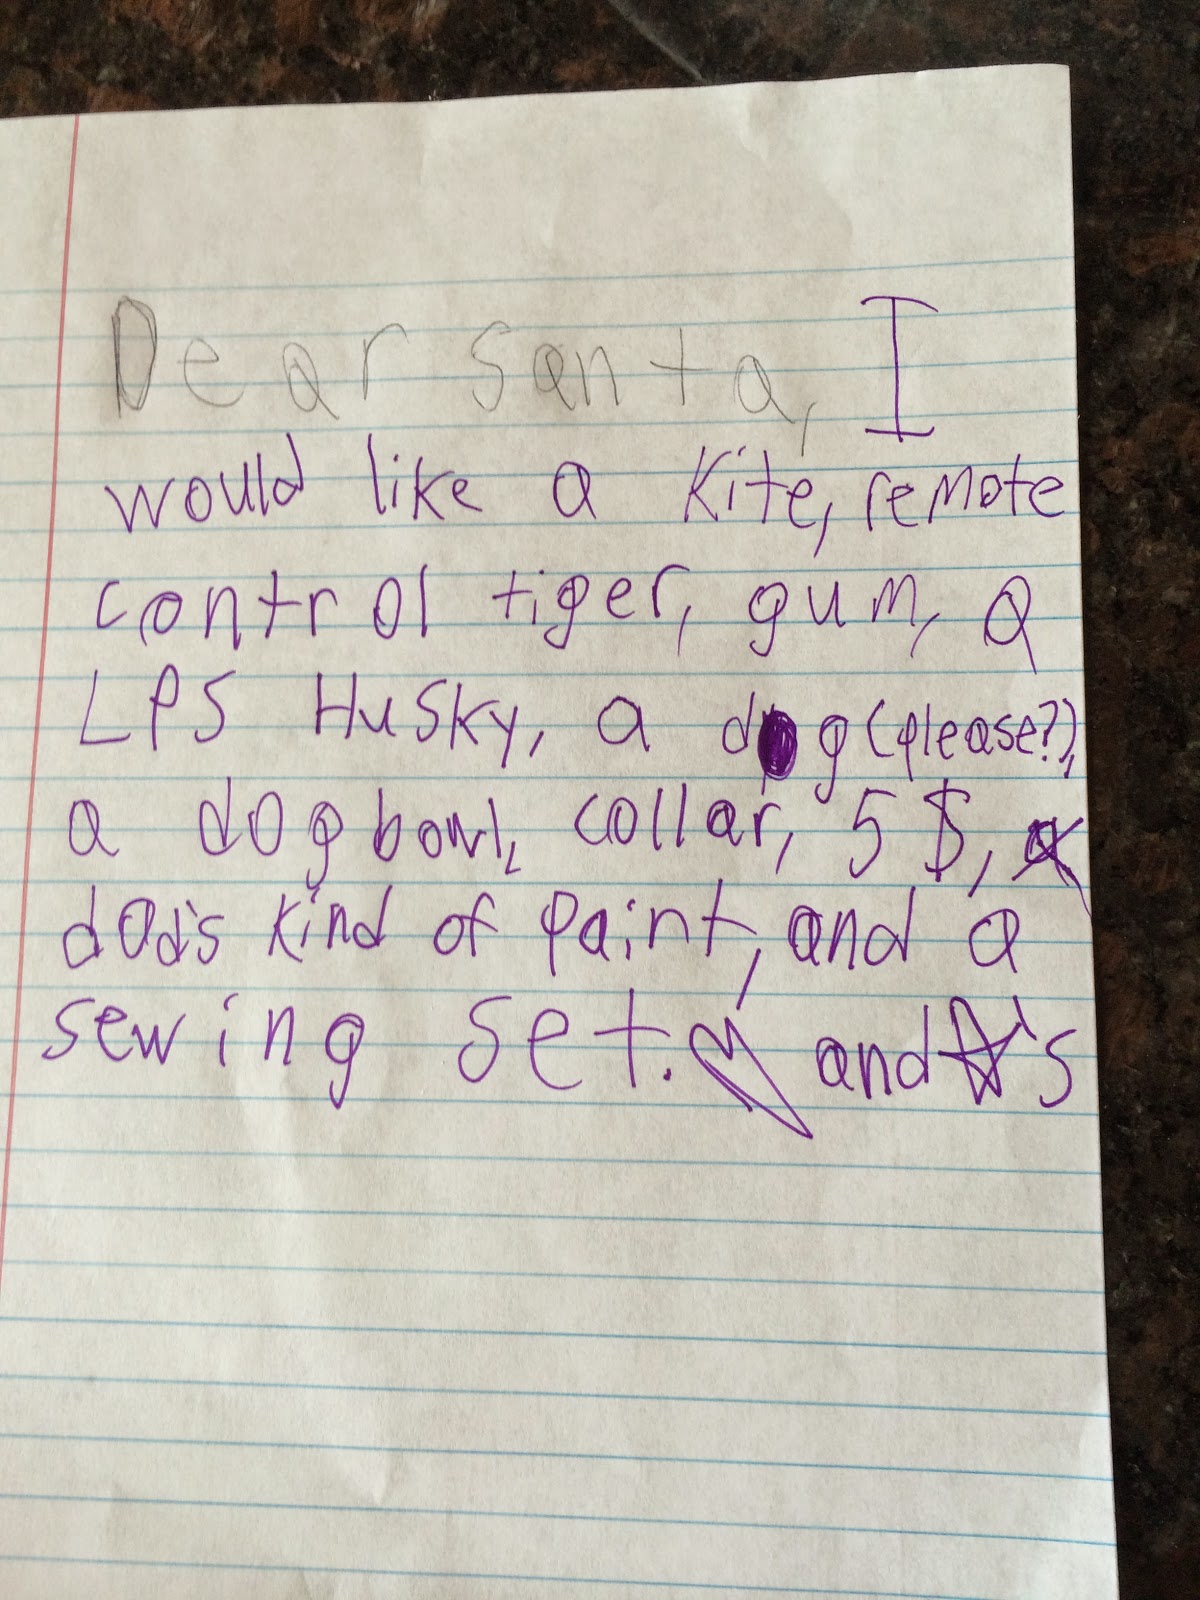 Dear Santa, I
would like a Kite, remote
control tiger, gum, a
LPS Husky, a dog (please?),
a dog bowl, collar, 5 $, a
dad's kind of paint, and a
sewing set. ♡ and ☆'s